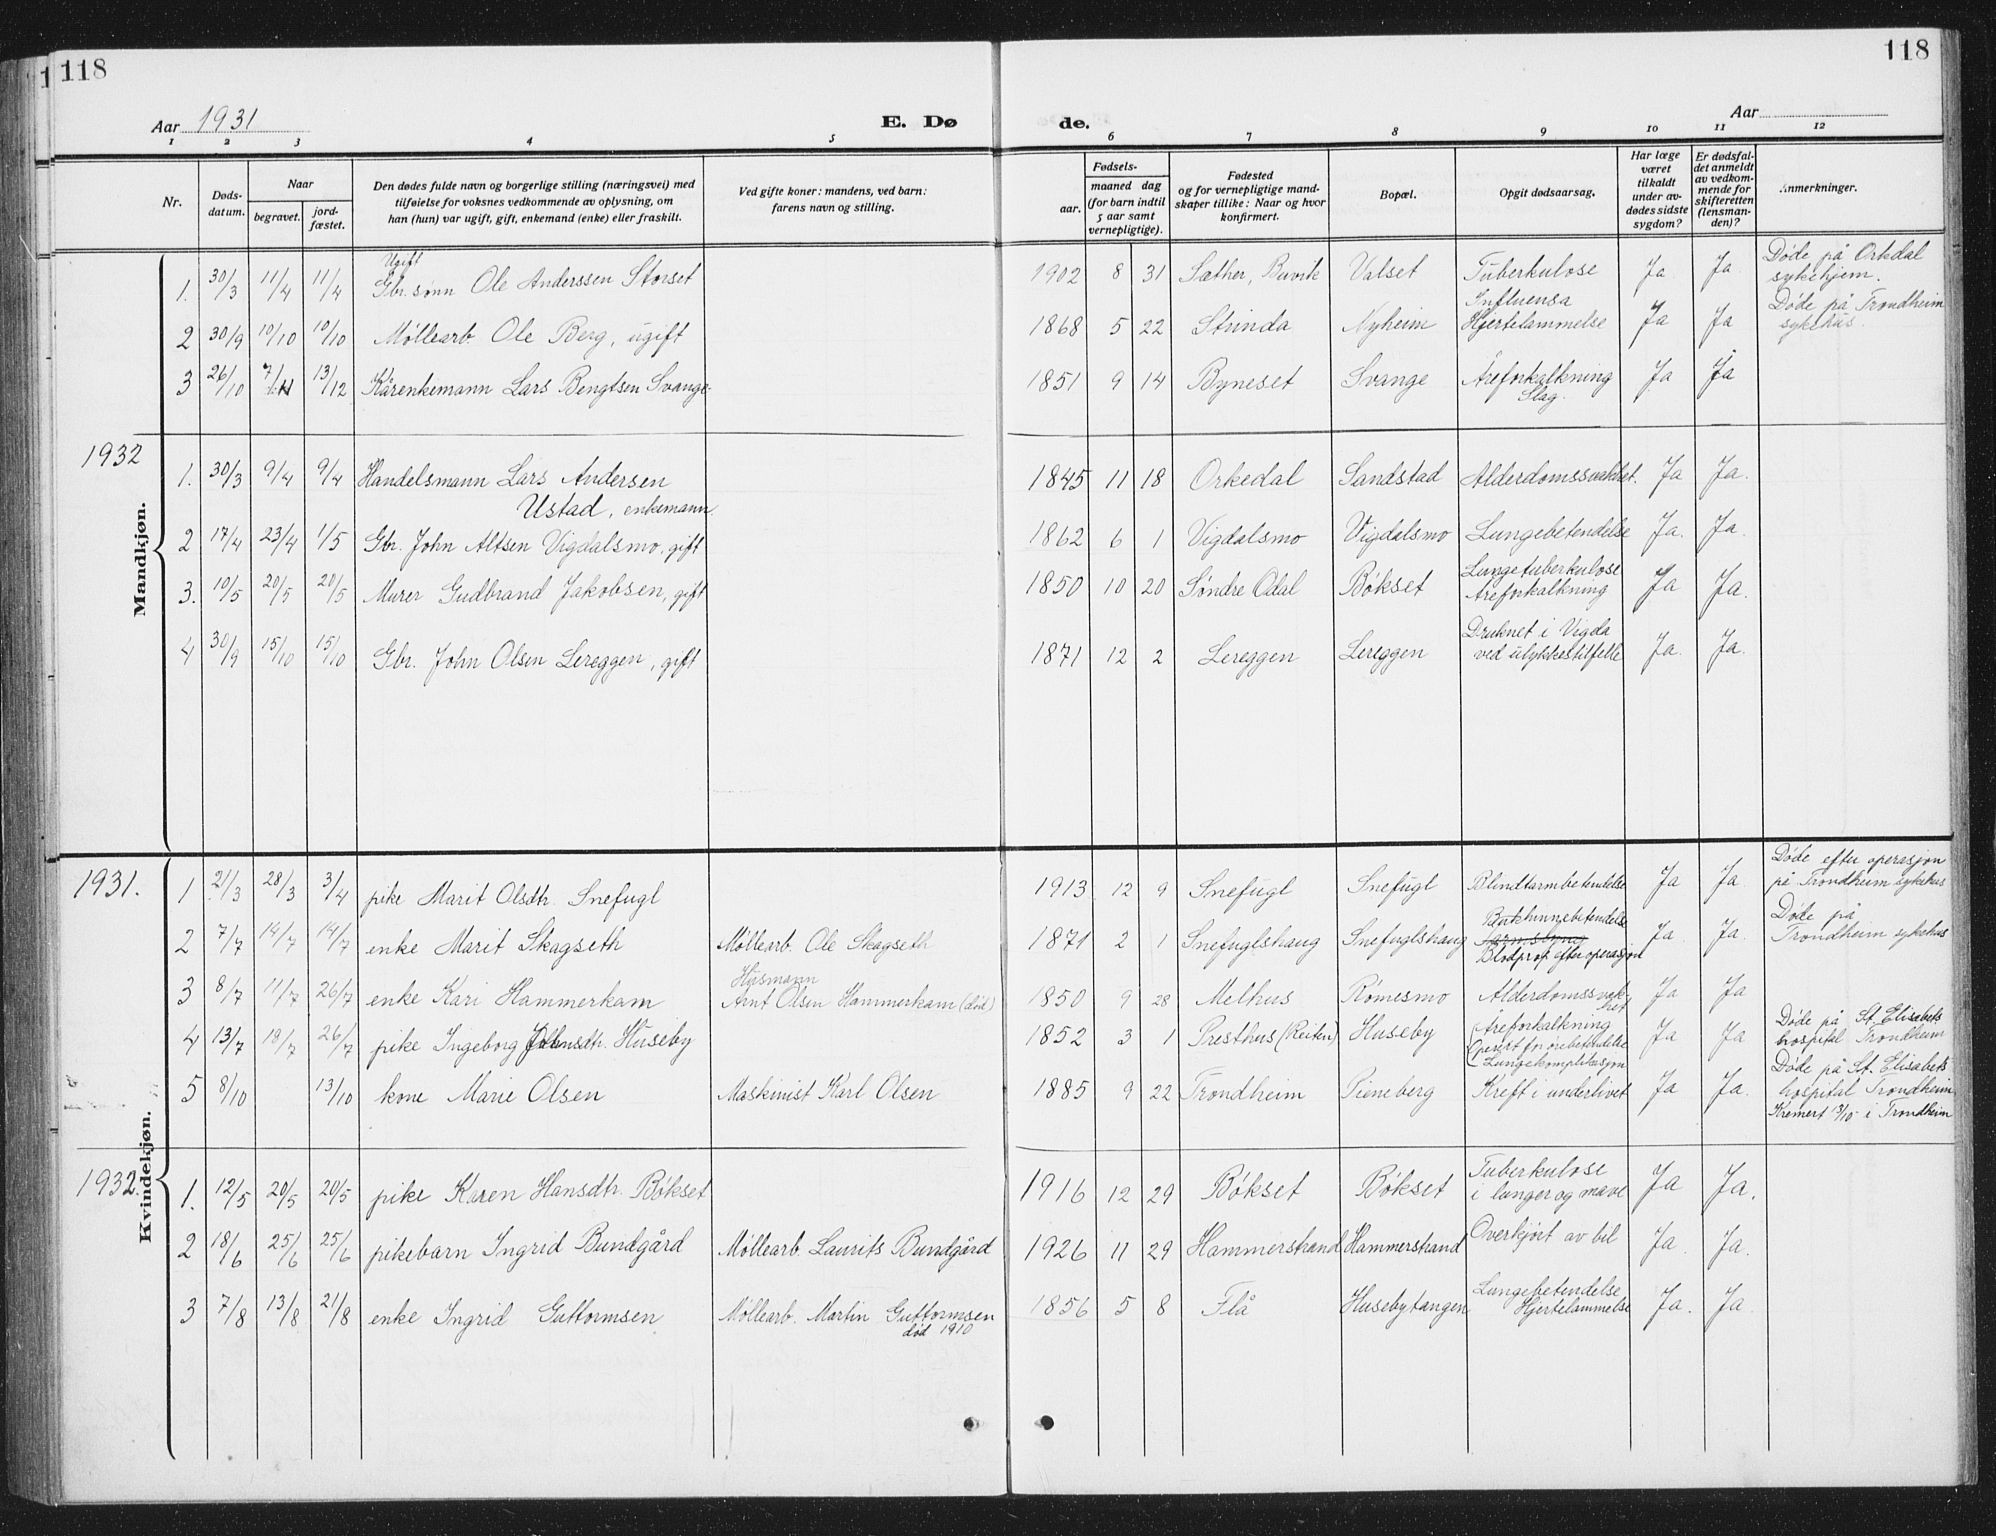 118
118
Aar 1931
E. Dø
de.
Aar
1 2 3 4 5 6 7 8 9 10 11 12
Nr.
Døds-
datum.
Naar
begravet.
jord-
fæstet.
Den dødes fulde navn og borgerlige stilling (næringsvei) med
tilføielse for voksnes vedkommende av oplysning, om
han (hun) var ugift, gift, enkemand (enke) eller fraskilt.
Ved gifte koner: mandens, ved barn:
farens navn og stilling.
Fødsels-
aar.
maaned dag
(for barn indtil
5 aar samt
vernepligtige).
Fødested
og for vernepligtige mand-
skaper tillike: Naar og hvor
konfirmert.
Bopæl.
Opgit dødsaarsag.
Har læge
været
tilkaldt
under av-
dødes sidste
sygdom?
Er dødsfal-
det anmeldt
av vedkom-
mende for
skifteretten
(lensman-
den)?
Anmerkninger.
Mandkjøn.
Ugift
1. 30/3 11/4 11/4 Gbr.sønn Ole Anderssen Storset 1902 8 31 Sæther, Buvik Valset Tuberkulose Ja Ja Døde på Orkdal
sykehjem.
2 30/9 10/10 10/10 Møllearb Ole Berg, ugift 1868 5 22 Strinda Nyheim Influensa
Hjertelammelse Ja Ja Døde på Trondheim
sykehus.
3 26/10 13/12 Kårenkemann Lars Bengtsen Svange 1851 9 14 Byneset Svange Åreforkalkning
Slag. Ja Ja
1932
1. 30/3 9/4 9/4 Handelsmann Lars Andersen
Ustad, enkemann 1845 11 18 Orkedal Sandstad Alderdomssvakhet. Ja Ja.
2 17/4 23/4 1/5 Gbr. John Altsen Vigdalsmo, gift 1862 6 1 Vigdalsmo Vigdalsmo Lungebetendelse Ja. Ja.
3. 10/5 20/5 20/5 Murer Gudbrand Jakobsen, gift 1850 10 20 Søndre Odal Bøkset Lungetuberkulose
Åreforkalkning Ja Ja.
4 30/9 15/10 15/10 Gbr. John Olsen Lereggen, gift 1871 12 2 Lereggen Lereggen Druknet i Vigda
ved ulykkestilfelle Ja. Ja.
Kvindekjøn.
1931.
1 21/3 28/3 3/4 pike Marit Olsdtr. Snefugl 1913 12 9 Snefugl Snefugl Blindtarmbetendelse Ja Ja. Døde efter operasjon
på Trondheim sykehus
2 7/7 14/7 14/7 enke Marit Skagseth Møllearb. Ole Skagseth 1871 2 1 Snefuglshaug Snefuglshaug Bukhinnebetendelse
Tarmslyng
Blodprop efter operasjon Ja. Ja. Døde på
Trondheim sykehus
3 8/7 11/7 26/7 enke Kari Hammerkam Husmann
Arnt Olsen Hammerkam (død) 1850 9 28 Melhus Rømesmo Alderdomssvak-
het Ja Ja
4 13/7 18/7 26/7 pike Ingeborg Johnsdtr. Huseby 1852 3 1 Presthus (Reiten) Huseby Åreforkalkning
Operert for ørebetendelse
Lungekomplikasjon Ja Ja Døde på St. Elisabets
hospital Trondheim
5 8/10 13/10 kone Marie Olsen Maskinist Karl Olsen 1885 9 22 Trondheim Pieneberg Kreft i underlivet Ja Ja. Døde på St. Elisabets
hospital Trondheim
Kremert 13/10 i Trondheim
1932.
1. 12/5 20/5 20/5 pike Karen Hansdtr. Bøkset 1916 12 29 Bøkset Bøkset Tuberkulose
i lunger og mave Ja Ja.
2 18/6 25/6 25/6 pikebarn Ingrid Bundgård Møllearb. Laurits Bundgård 1926 11 29 Hammerstrand Hammerstrand Overkjørt av bil Ja. Ja.
3 7/8 13/8 21/8 enke Ingrid Guttormsen Møllearb. Martin Guttormsen
død 1910 1856 5 8 Flå Husebytangen Lungebetendelse
Hjertelammelse Ja. Ja.